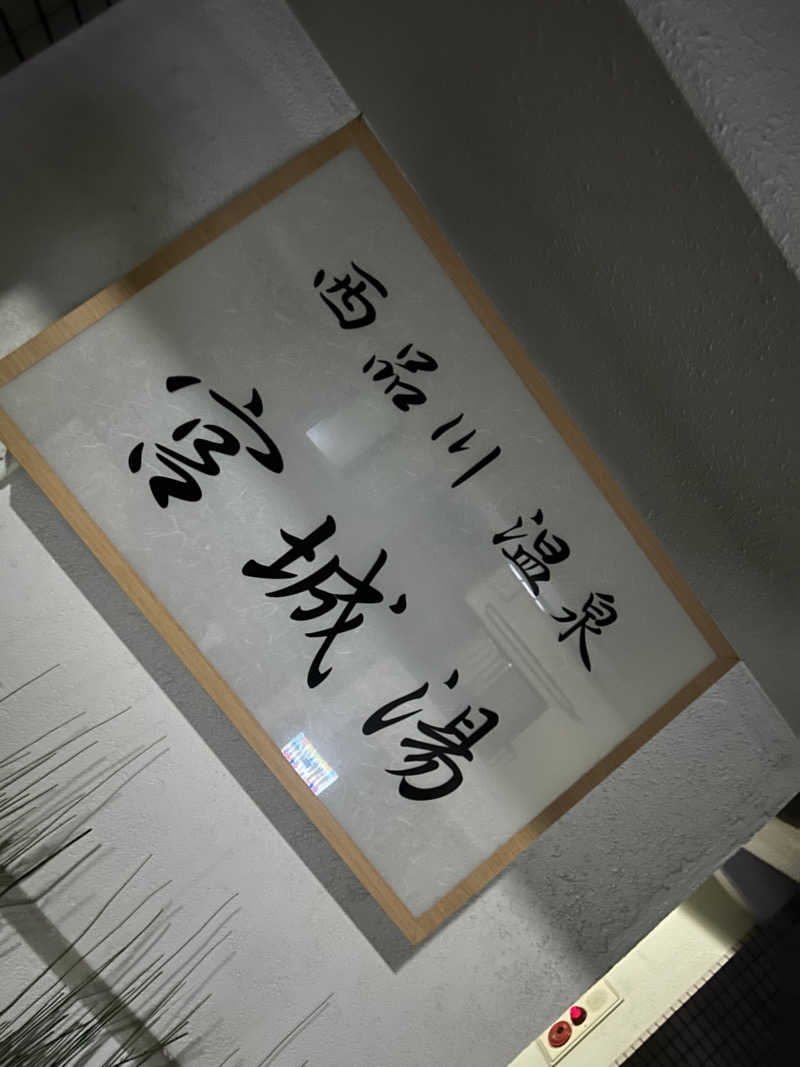 西品川温泉
宮城湯